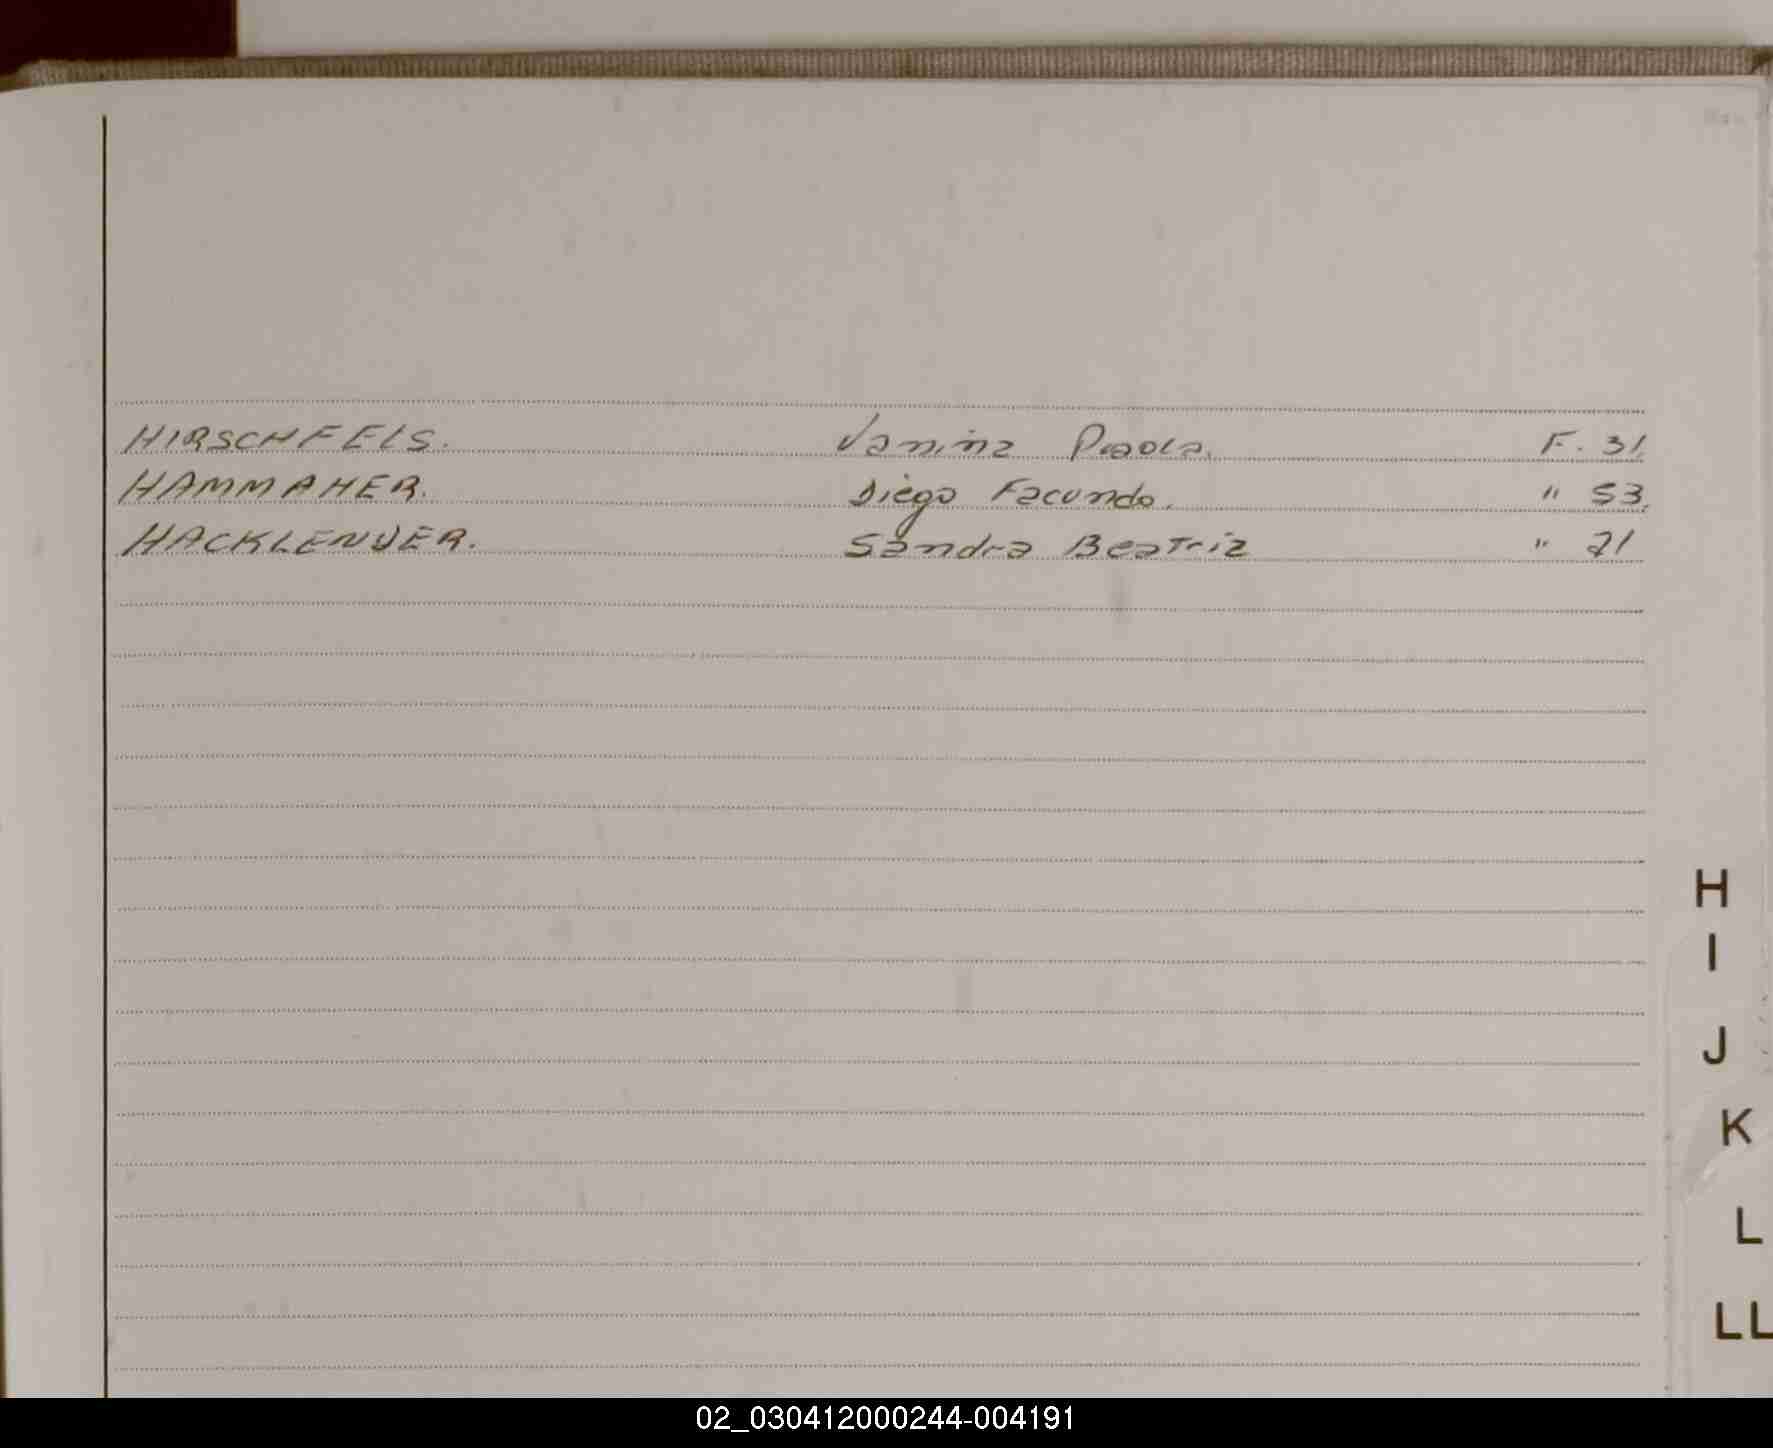 HIRSCHFELS. Vanina Paola. F. 31.
HAMMAHER. Diego Facundo. " 53.
HACKLENDER. Sandra Beatriz " 71
H
I
J
K
L
LL
02_030412000244-004191